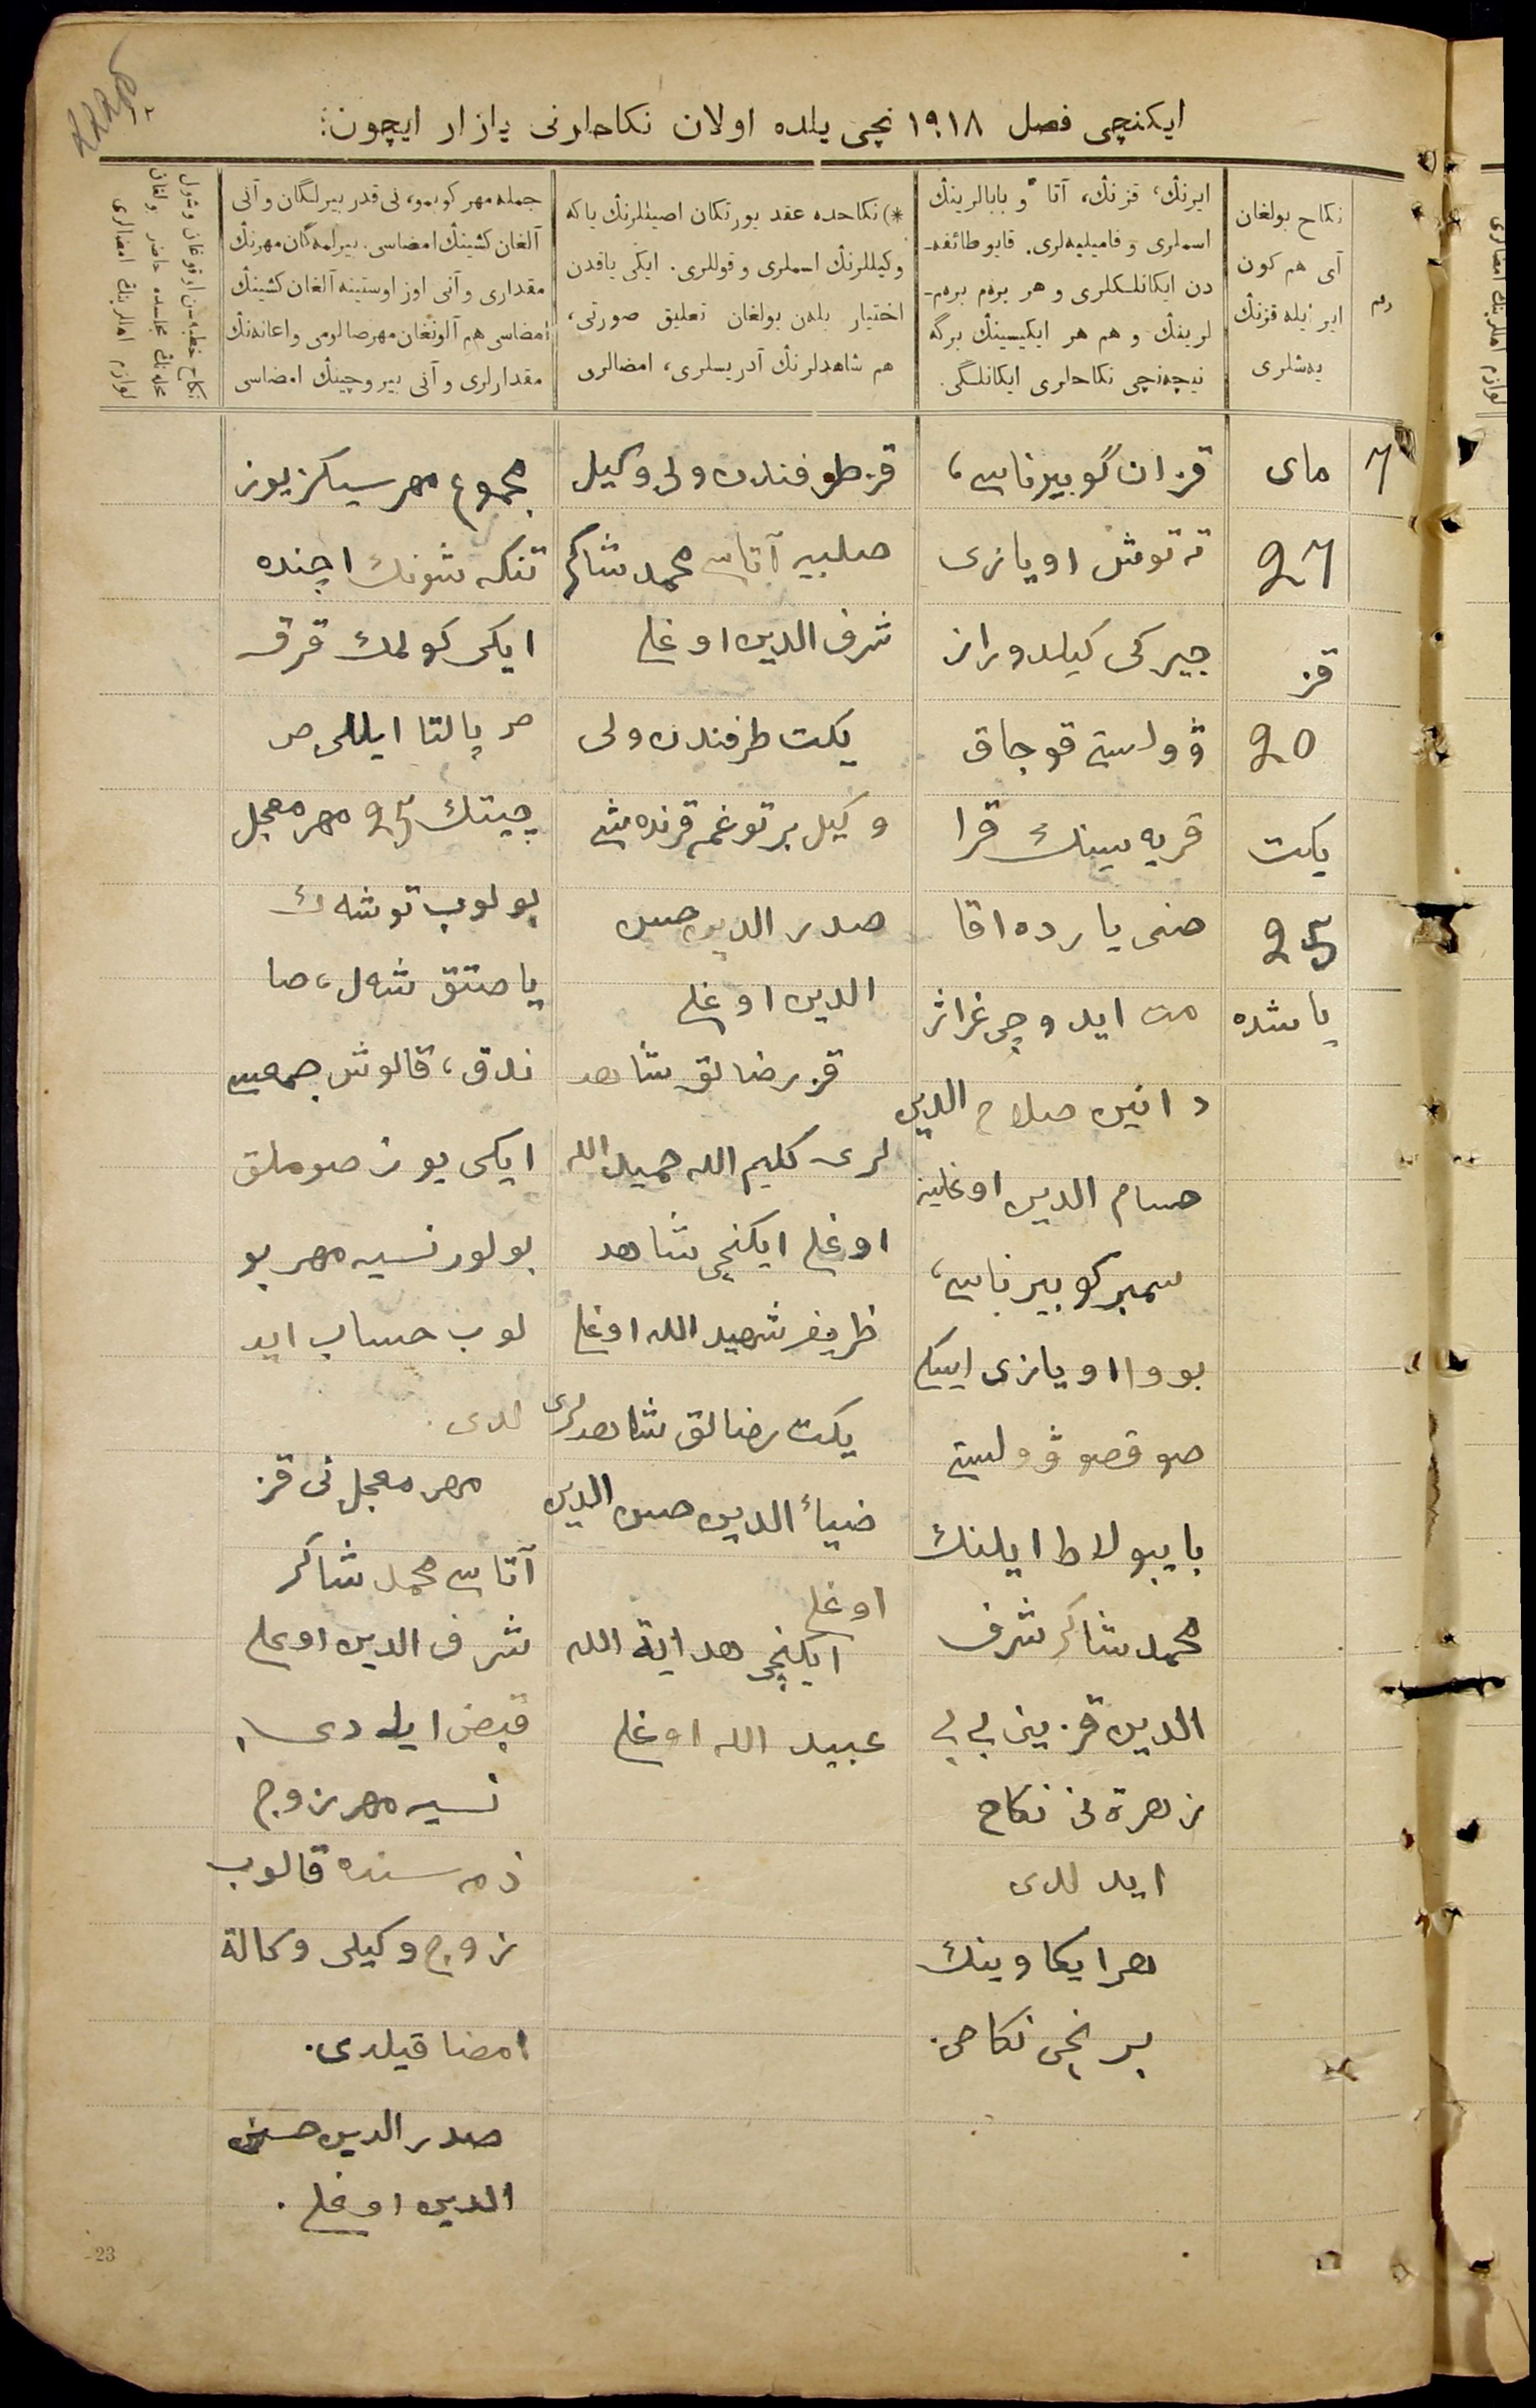 ایکنچی فصل ۱۹۱۸ نچی یلده اولان نکاحلرنی یازار ایچون:
رقم
نکاح بولغان
آی هم کون
ایر ایله قزنڭ
یەشلری
ایرنڭ، قزنڭ، آتا و بابالرینڭ
اسملری و فامیلیەلری. قایو طائفه-
دن ایکانلکلری و هر برم برم-
لرینڭ و هم هر ایکیسینڭ برگه
نیچەنچی نکاحلری ایکانلگی.
*) نکاحده عقد یورتکان اصیللرنڭ یا که
وکیللرنڭ اسملری و قوللری. ایکی یاقدن
اختیار بلەن بولغان تعلیق صورتی،
هم شاهدلرنڭ آدریسلری، امضالری
جمله مهر کوبمو، نی قدر بیرلگان و آنی
آلغان کشینڭ امضاسی. بیرلمەگان مهرنڭ
مقداری و آنی اوز اوستینه آلغان کشینڭ
امضاسی هم آلونغان مهرصالومی و اعانەنڭ
مقدارلری و آنی بیروچینڭ امضاسی
نکاح خطبەسن اوقوغان وشول
مجلسده حاضر ولغان
لوازم امضالری
7
مای
27
قز
20
یکت
25
یاشده
قزان گوبیرناسی،
تەتوش اویازی
جیرکی کیلدوراز
ڤولستی قوجاق
قریه سینڭ قرا
داننین صلاح الدین
حسام الدین اوغلینه
سمبر کوبیرناسی،
بووا اویازی ایسکی
صوقصو ڤولستی
بایبولاط ایلنڭ
محمد شاکر شرف
الدین قزین بی بی
زهرة نی نکاح
ایدلدی
هر ایکاوینڭ
برنچی نکاحی.
قز طرفندن ولی وکیل
صلبیه آتاسی محمد شاکر
شرف الدین اوغلی
یکت طرفندن ولی
وکیل برتوغم قرنده شی
صدر الدین حسن
الدین اوغلی
قز رضالق شاهد
لری کلیم الله حمید الله
اوغلی ایکنچی شاهد
ظریف شهید الله اوغلی
یکت رضالق شاهدلری
ضیاء الدین حسن الدین
اوغلی
ایکنچی هدایة الله
عبید الله اوغلی
مجموع مهر سیکز یوز
تنکه شونڭ اچنده
ایکی کولمك قرق
ص پالتا ایللی ص
چیتك 25 مهر معجل
بولوب توشەك
یاصتق شەل، صا
ندق، قالوش جمعسی
ایکی یوز صوملق
بولور نسیه مهر بو
لوب حساب اید
لدی.
مهر معجل نی قز
آتاسی محمد شاکر
شرف الدین اوغلی
قبض ایلەدی.
نسیه مهر زوج
ذمه سنده قالوب
زوج وکیلی وکالة
امضا قیلدی.
صدر الدین حسن
الدین اوغلی.
23